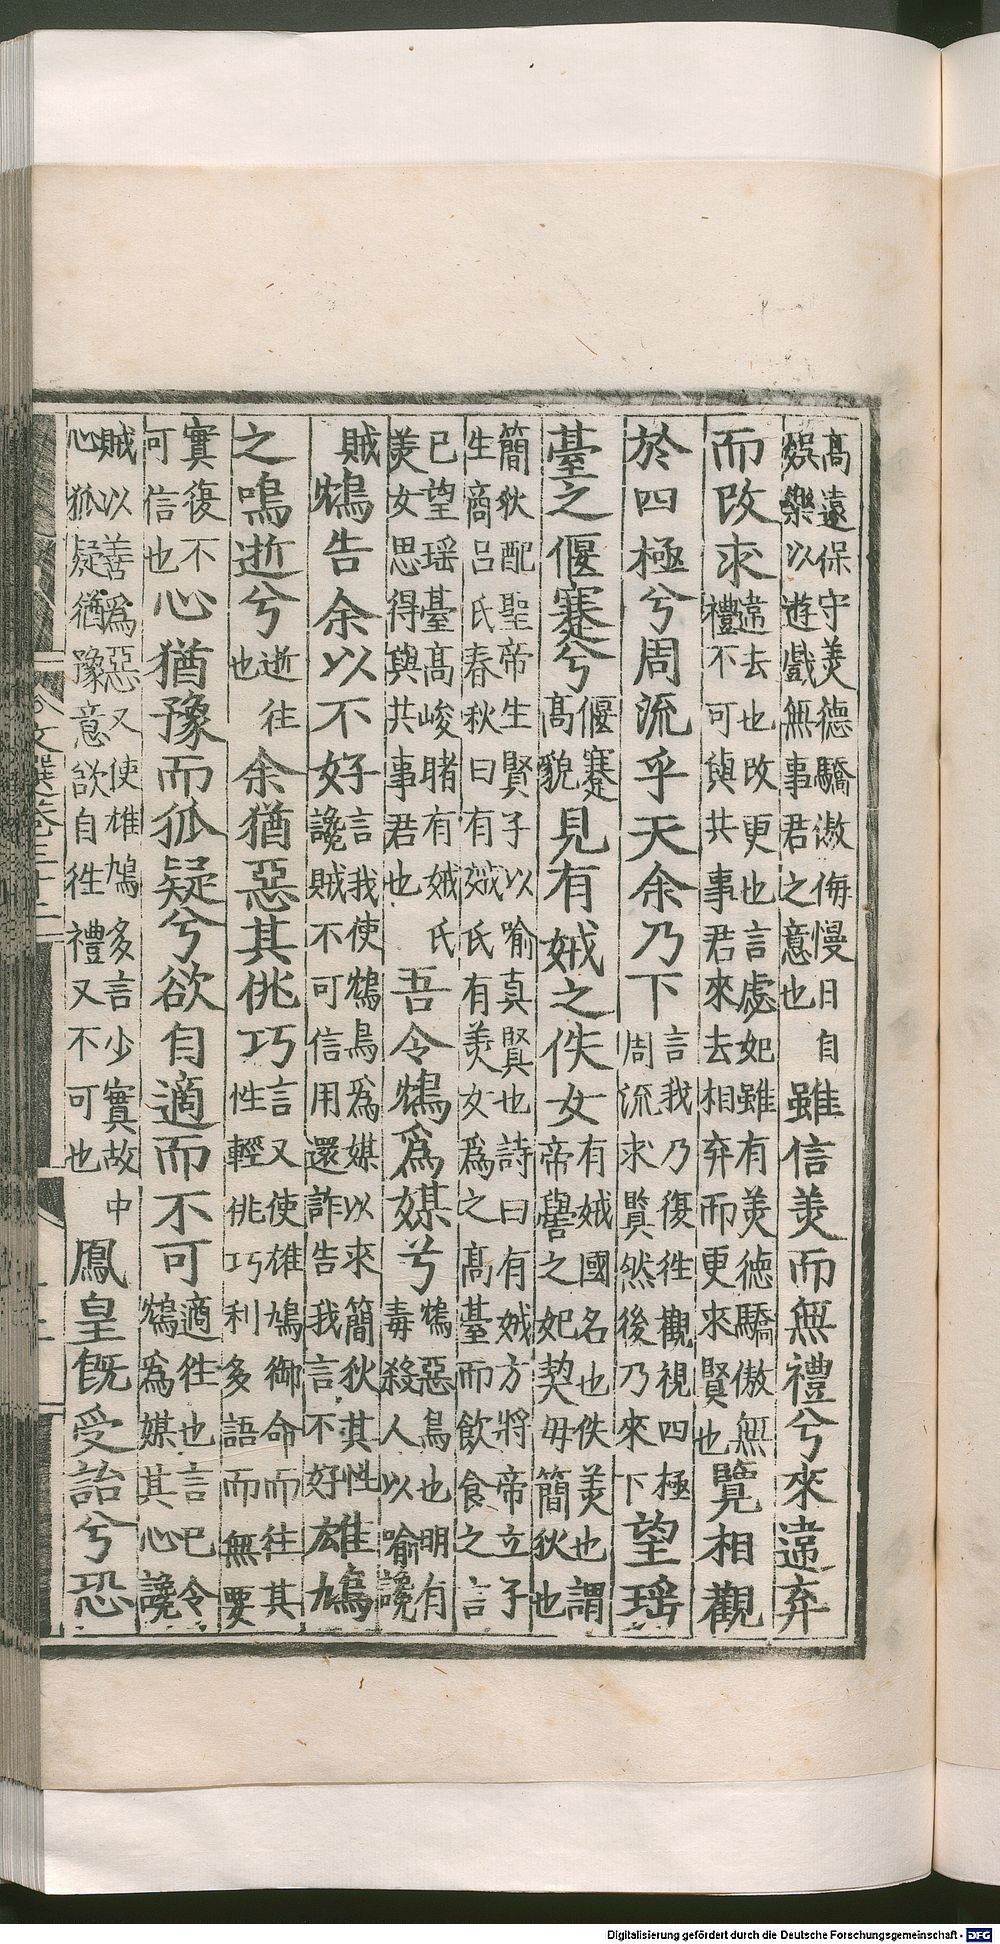 高遠保守羙德驕傲侮慢日自娛樂以遊戲無事君之意也雖信羙而無禮兮來違弃
而改求違去也改更也言虙妃雖有羙德驕傲無禮不可與共事君來去相弃而更來賢也覽相觀
於四極兮周流乎天余乃下言我乃復徃觀視四極周流求賢然後乃來下望瑶
臺之偃蹇兮偃蹇高貌見有娀之佚女有娀國名也佚羙也謂帝嚳之妃契毋簡狄也
簡狄配聖帝生賢子以喻真賢也詩曰有娀方將帝立子生商吕氏春秋曰有娀氏有羙女爲之高臺而飲食之言
已望瑶臺高峻睹有娀氏羙女思得與共事君也吾令鴆爲媒兮鴆惡鳥也明有毒殺人以喻讒
賊鴆告余以不好言我使鴆鳥爲媒以來簡狄其性讒賊不可信用還詐告我言不好雄鳩
之鳴逝兮逝往也余猶惡其佻巧言又使雄鳩銜命而往其性輕佻巧利多語而無要
實復不可信也心猶豫而狐疑兮欲自適而不可適往也言巳令鴆爲媒其心讒
賊以善爲惡又使雄鳩多言少實故中心狐疑猶豫意欲自往禮又不可也鳳皇旣受詒兮恐
文選卷三十二
Digitalisierung gefördert durch die Deutsche Forschungsgemeinschaft - DFG